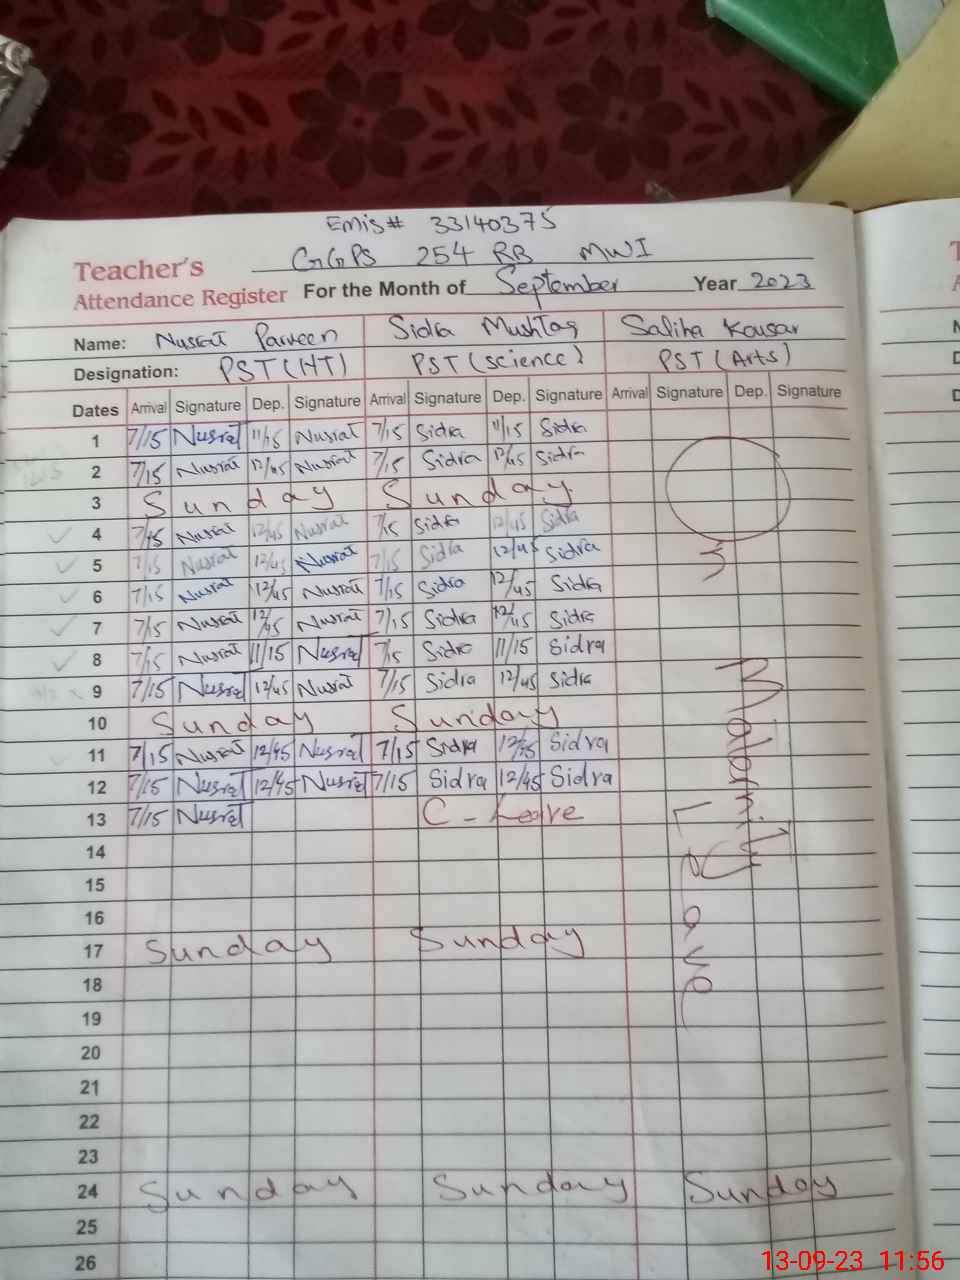 Emis# 33140375
GGPS 254 RB MWI
Teacher's
Attendance Register For the Month of September Year 2023
Name: Nusrat Parveen Sidra Mushtaq Saliha Kousar
Designation: PST(HT) PST(Science) PST(Arts)
Dates Arrival Signature Dep. Signature Arrival Signature Dep. Signature Arrival Signature Dep. Signature
1 7/15 Nusrat 11/15 Nusrat 7/15 Sidra 11/15 Sidra
2 7/15 Nusrat 12/45 Nusrat 7/15 Sidra 12/45 Sidra
3 Sunday Sunday
4 7/15 Nusrat 12/45 Nusrat 7/15 Sidra 12/45 Sidra
5 7/15 Nusrat 12/45 Nusrat 7/15 Sidra 12/45 Sidra
6 7/15 Nusrat 12/45 Nusrat 7/15 Sidra 12/45 Sidra
7 7/15 Nusrat 12/45 Nusrat 7/15 Sidra 12/45 Sidra
8 7/15 Nusrat 11/15 Nusrat 7/15 Sidra 11/15 Sidra
9 7/15 Nusrat 12/45 Nusrat 7/15 Sidra 12/45 Sidra
10 Sunday Sunday
11 7/15 Nusrat 12/45 Nusrat 7/15 Sidra 12/45 Sidra
12 7/15 Nusrat 12/45 Nusrat 7/15 Sidra 12/45 Sidra
13 7/15 Nusrat C-Leave
Maternity
Leave
14
15
16
17 Sunday Sunday
18
19
20
21
22
23
24 Sunday Sunday Sunday
25
26
13-09-23 11:56